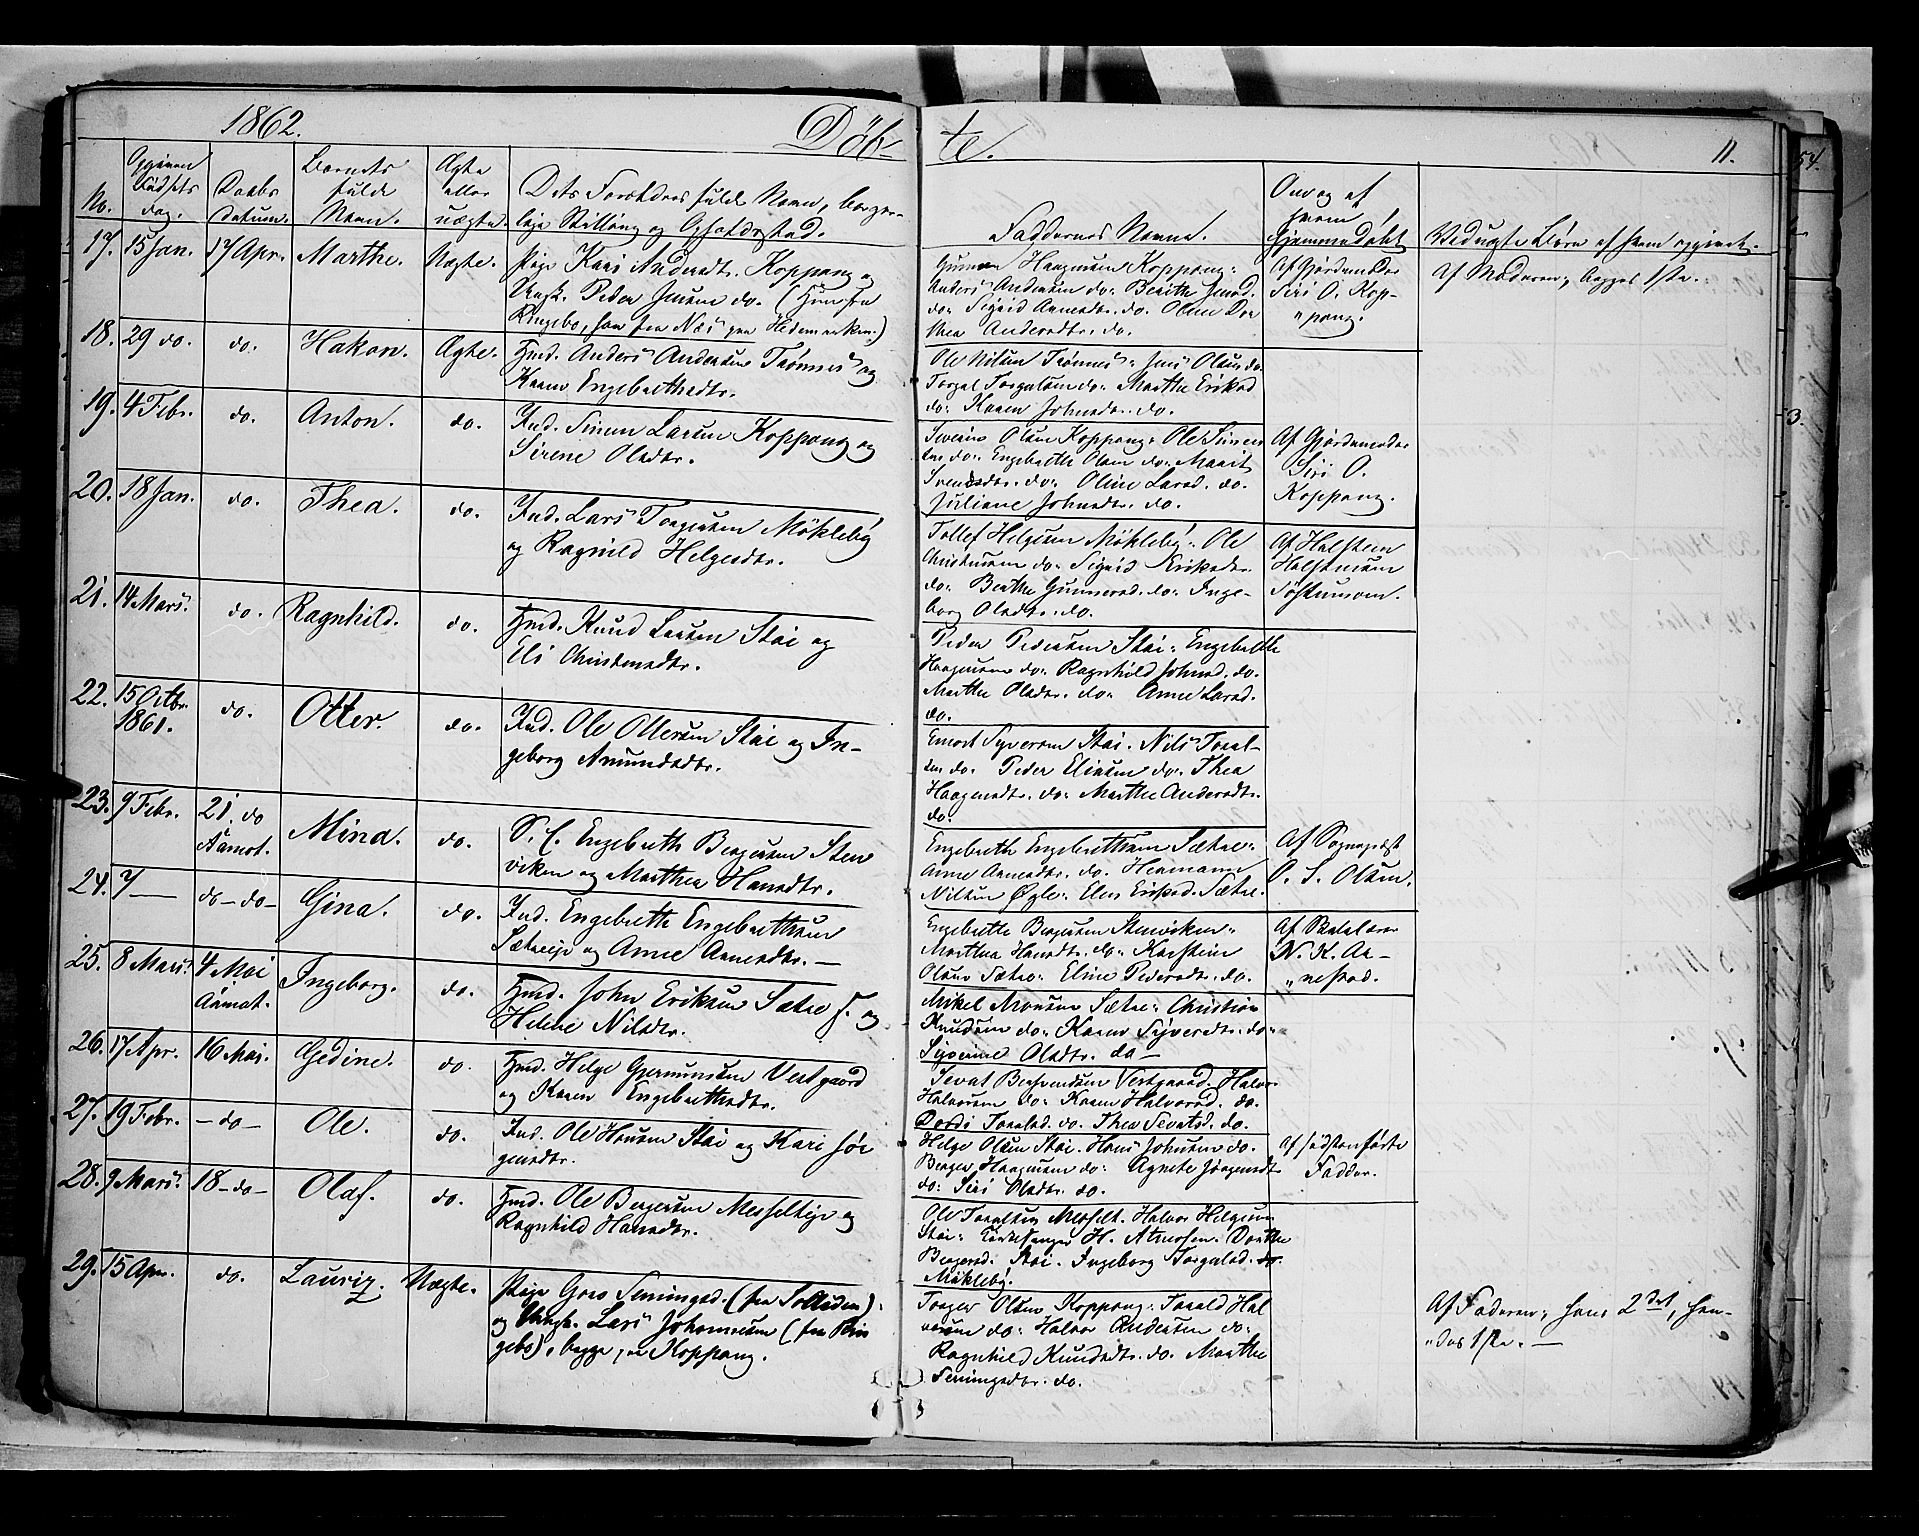 1862.
Døb-
te.
11.
54.
No.
Opgiven
Fødsels
dag.
Daabs
datum.
Barnets
fulde
Navn.
Ægte
eller
uægte.
Dets Forældres fulde Navn, borger-
lige Stilling og Opholdssted.
Faddernes Navne.
Om og af
hvem
hjemmedøbt
Ved uægte Børn af hvem opgivet.
17. 15 Jan. 17 Apr. Marthe. Uægte.
Pige Kari Andersdtr. Koppang og
Ungk. Peder Jensen do. (hun fra
Ringebo, han fra Næs paa Hedemarken.)
Gunner Haagensen Koppang:
Anders Andersen do: Berithe
do: Sigrid Arnesdtr. do. Oline Dor
thea Andersdtr. do.
Af Gjordemoder
Siri O. Kop-
"pang.
Af Moderen;
18. 29 do. do. Hakon. Ægte.
Hmd. Anders Andersen Trønnes og
Karen Engebrethsdtr.
Ole Nilsen Trønnes: Jens Olsen do.
Torgal Torgalsen do: Marthe Eriksd.
do: Karen Johnsdtr. do.
19. 4 Febr. do. Anton. do.
Ind. Simen Larsen Koppang og
Sirene Olsdtr.
Severin Olsen Koppang: Ole Simen
sen do: Engebreth Olsen do: Maarit
Svendsdtr. do: Oline Larsd. do.
Juliane Johnsdtr. do.
Af Gjordemoder
Siri O.
Koppang.
20. 18 Jan. do. Thea. do.
Ind. Lars Torgersen Møklebÿ
og Ragnild Helgesdtr.
Tollef Helgesen Møklebÿ: Ole
Christensen do: Sigrid Eriksdtr.
do: Berthe Gunnersd. do: Inge-
borg Olsdtr. do.
Af Halsten
Halstensen
21. 14 Mars. do. Ragnhild. do.
Hmd. Knud Larsen Stai og
Eli Christensdtr.
Peder Pedersen Stai: Engebrethe
Haagensen do: Ragnhild Johnsd. do.
Marthe Olsdtr. do: Anne Larsd.
do.
22. 15 Octbr.
1861. do. Otter. do.
Ind. Ole Ottersen Stai og In-
geborg Amundsdtr.
Syversen Stai. Nils Toral-
sen do: Peder Eliasen do: Thea
Haagensdtr. do: Marthe Andersdtr.
do.
23. 9 Febr. 21. do
Aamot. Mina. do.
S. C. Engebreth Bergersen Sten
viken og Marthea Hansdtr.
Engebreth Engebrethsen Sætre:
Anne Arnesdtr. do. Hermann
Nilsen Øgle: Elen Eriksd. Sætre.
Af Sognepræst
O. S. Olsen.
24. 7 — do-do- Gina. do.
Ind. Engebreth Engebrethsen
Sætreeje og Anne Arnesdtr. —
Engebreth Bergersen Stenviken:
Marthea Hansdtr. do: Karsten
Olsen Sætre: Eline Pedersdtr. do.
Af Skolelærer
N. K. Aa-
"nestad.
25. 8 Mars. 4 Mai
Aamot. Ingeborg. do.
Hmd. John Eriksen Sætre S. og
Helene Nilsdtr.
Mikel Monsen Sætre: Christian
Knudsen do: Karen Syversdtr. do:
Syverine Olsdtr. do —
26. 17 Apr. 16 Mai. Gedine. do.
Hmd. Helge Gjermunsen Vestgaard
og Karen Engebrethsdtr.
Sevat Bersvendsen Vestgaard. Halvor
Halvorsen do: Karen Halvorsd. do.
Dordi Toralsd. do. Thea Sevatsd. do.
27. 19 Febr. — do — Ole. do.
Ind. Ole Hansen Stai og Kari Jør
gensdtr.
Helge Olsen Stai. Hans Johnsen do.
Berger Haagensen do: Agnete Jørgensdtr.
do: Siri Olsdtr. do.
Af sidstanførte
Fadder.
28. 9 Mars. 18 - do - Olaf. do.
Hmd. Ole Bergersen Messelteje og
Ragnhild Hansdtr.
Ole Toralsen Messelt. Halvor Helgesen
Stai: Kirkesanger H. Atneosen: Dorthe
Bergersd. Stai. Ingeborg Torgalsd. do.
Møklebÿ.
29. 15 Apr. do. Lauriz. Uægte.
Pige Goro Semingsd. (fra Solliden)
og Ungk. Lars Johannesen (fra Rin
gebo), begge paa Koppang.
Torger Olsen Koppang: Torald Hal
vorsen do: Halvor Andersen do:
Ragnhild Knudsdtr. do. Marthe
Semingsdtr. do.
Af Faderen; hans 2det, hen-
"des 1ste. —